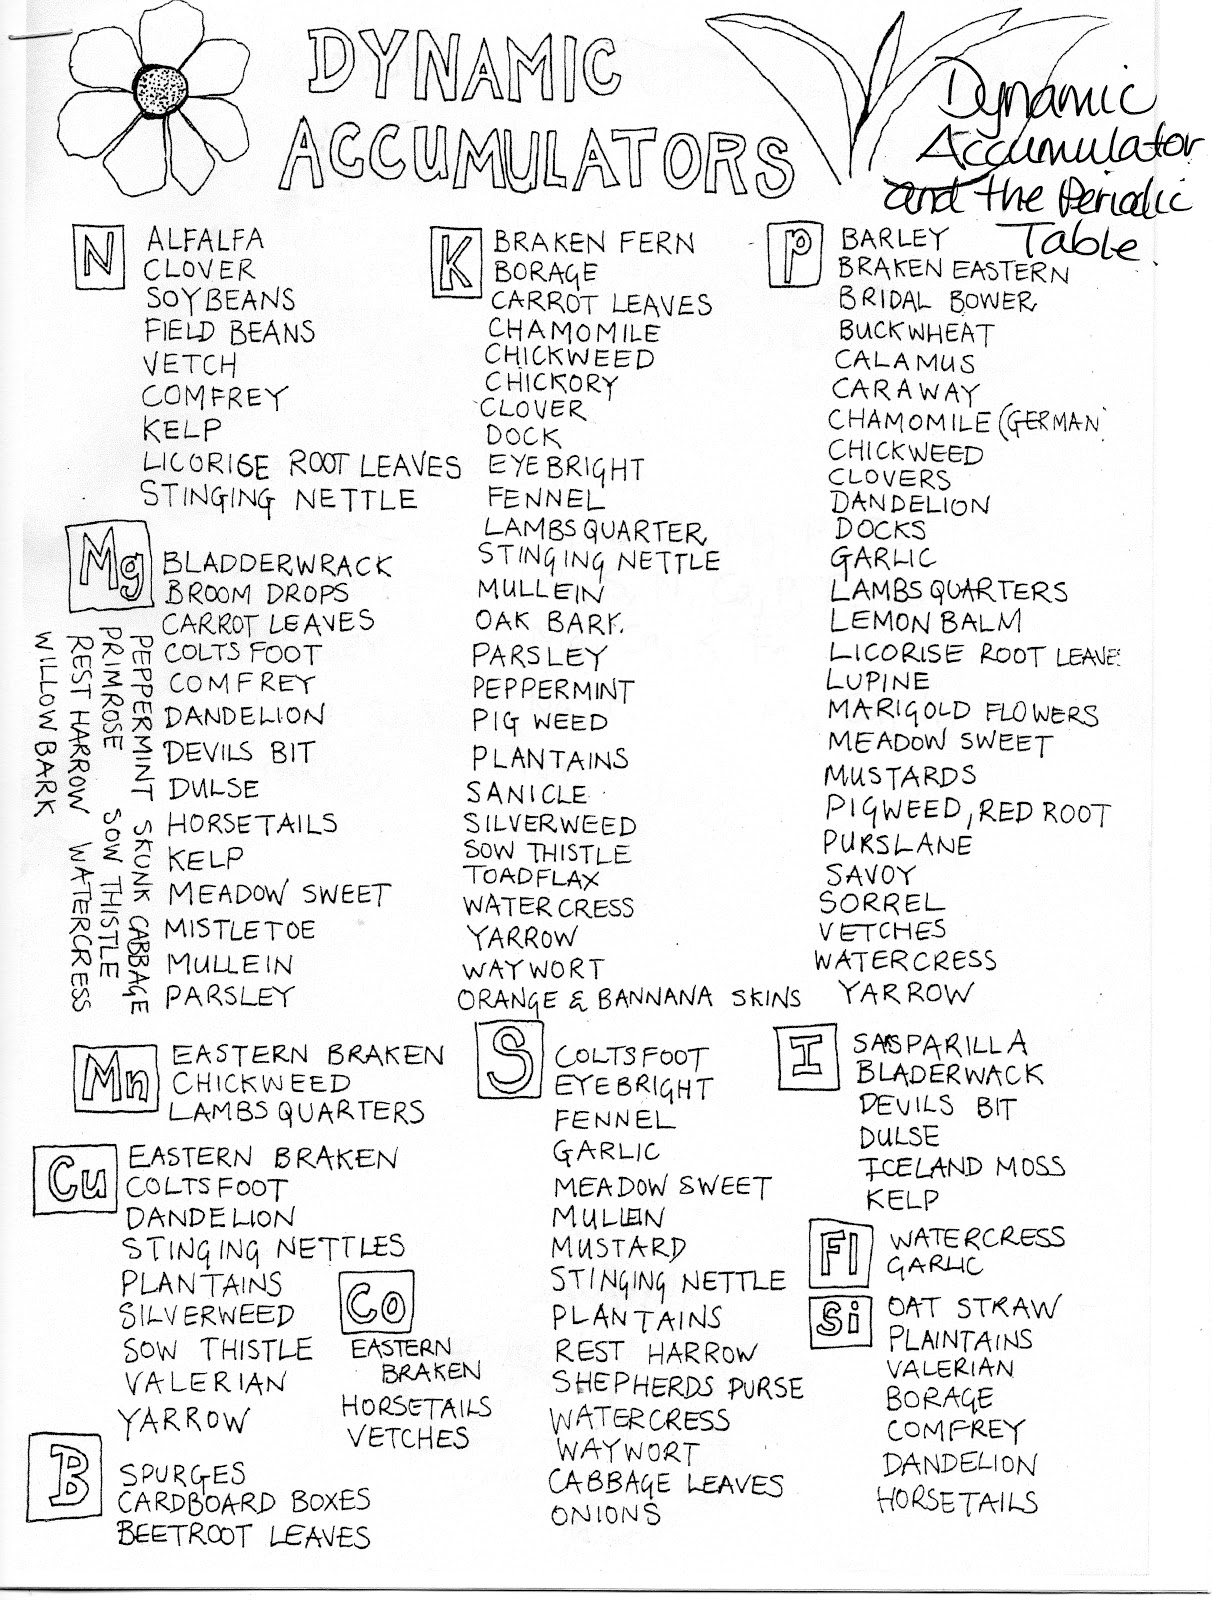 DYNAMIC
ACCUMULATORS
Dynamic
Accumulator
and the Periodic
Table.
N
ALFALFA
CLOVER
SOYBEANS
FIELD BEANS
VETCH
COMFREY
KELP
LICORISE ROOT LEAVES
STINGING NETTLE
Mg
BLADDERWRACK
BROOM DROPS
CARROT LEAVES
COLTS FOOT
COMFREY
DANDELION
DEVILS BIT
DULSE
HORSETAILS
KELP
MEADOW SWEET
MISTLETOE
MULLEIN
PARSLEY
PEPPERMINT SKUNK CABBAGE
PRIMROSE SOW THISTLE
REST HARROW WATERCRESS
WILLOW BARK
K
BRAKEN FERN
BORAGE
CARROT LEAVES
CHAMOMILE
CHICKWEED
CHICKORY
CLOVER
DOCK
EYEBRIGHT
FENNEL
LAMBS QUARTER
STINGING NETTLE
MULLEIN
OAK BARK.
PARSLEY
PEPPERMINT
PIG WEED
PLANTAINS
SANICLE
SILVERWEED
SOW THISTLE
TOADFLAX
WATERCRESS
YARROW
WAYWORT
ORANGE & BANNANA SKINS
P
BARLEY
BRAKEN EASTERN
BRIDAL BOWER
BUCKWHEAT
CALAMUS
CARAWAY
CHAMOMILE (GERMAN
CHICKWEED
CLOVERS
DANDELION
DOCKS
GARLIC
LAMBS QUARTERS
LEMON BALM
LICORISE ROOT LEAVE
LUPINE
MARIGOLD FLOWERS
MEADOW SWEET
MUSTARDS
PIGWEED, RED ROOT
PURSLANE
SAVOY
SORREL
VETCHES
WATERCRESS
YARROW
Mn
EASTERN BRAKEN
CHICKWEED
LAMBS QUARTERS
Cu
EASTERN BRAKEN
COLTSFOOT
DANDELION
STINGING NETTLES
PLANTAINS
SILVERWEED
SOW THISTLE
VALERIAN
YARROW
Co
EASTERN
BRAKEN
HORSETAILS
VETCHES
B
SPURGES
CARDBOARD BOXES
BEETROOT LEAVES
S
COLTSFOOT
EYEBRIGHT
FENNEL
GARLIC
MEADOW SWEET
MULLEIN
MUSTARD
STINGING NETTLE
PLANTAINS
REST HARROW
SHEPHERDS PURSE
WATERCRESS
WAYWORT
CABBAGE LEAVES
ONIONS
I
SASPARILLA
BLADERWACK
DEVILS BIT
DULSE
ICELAND MOSS
KELP
Fl
WATERCRESS
GARLIC
Si
OAT STRAW
PLAINTAINS
VALERIAN
BORAGE
COMFREY
DANDELION
HORSETAILS